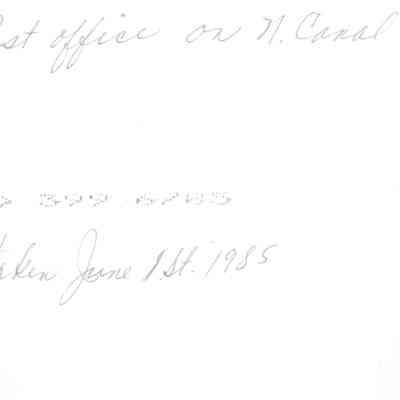 ost office on N. Canal
399
aken June 1st. 1985